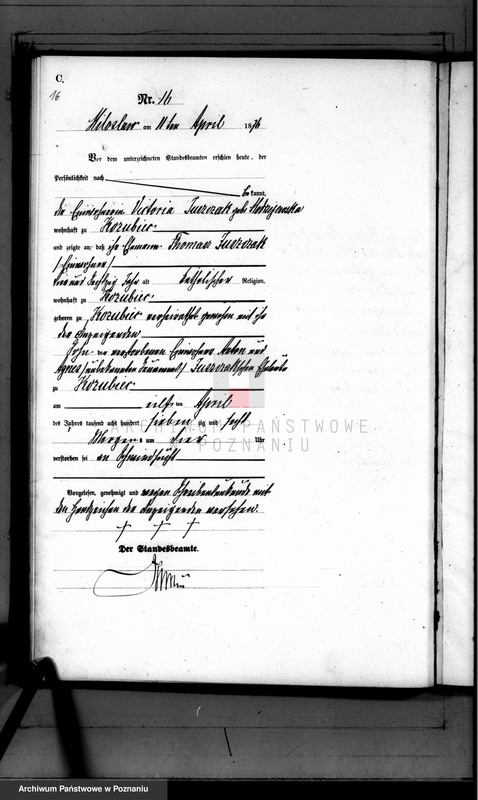 C.
16
Nr. 16
Miloslaw am 11ten April 1876
Vor dem unterzeichneten Standesbeamten erschien heute, der
Persönlichkeit nach
bekannt,
die Einwohnerin Victoria Juszczak geb.
wohnhaft zu Kozubiec
und zeigte an, daß ihr Ehemann Thomas Juszczak
/Einwohner/
sechszig Jahr alt katholischer Religion,
wohnhaft zu Kozubiec
geboren zu Kozubiec verheirathet gewesen mit
der Anzeigenden
Sohn der verstorbenen Einwohner Anton und
Agnes /unbekannten Juszczak'schen Eheleute
zu Kozubiec
am elften April
des Jahres tausend acht hundert siebenzig und sechs
Morgens um vier Uhr
verstorben sei an Schwindsucht
Vorgelesen, genehmigt und wegen Schreibensunkunde mit
den Handzeichen der Anzeigenden versehen.
+ + +
Der Standesbeamte.
ARCHIWUM PAŃSTWOWE
POZNANIU
Archiwum Państwowe w Poznaniu